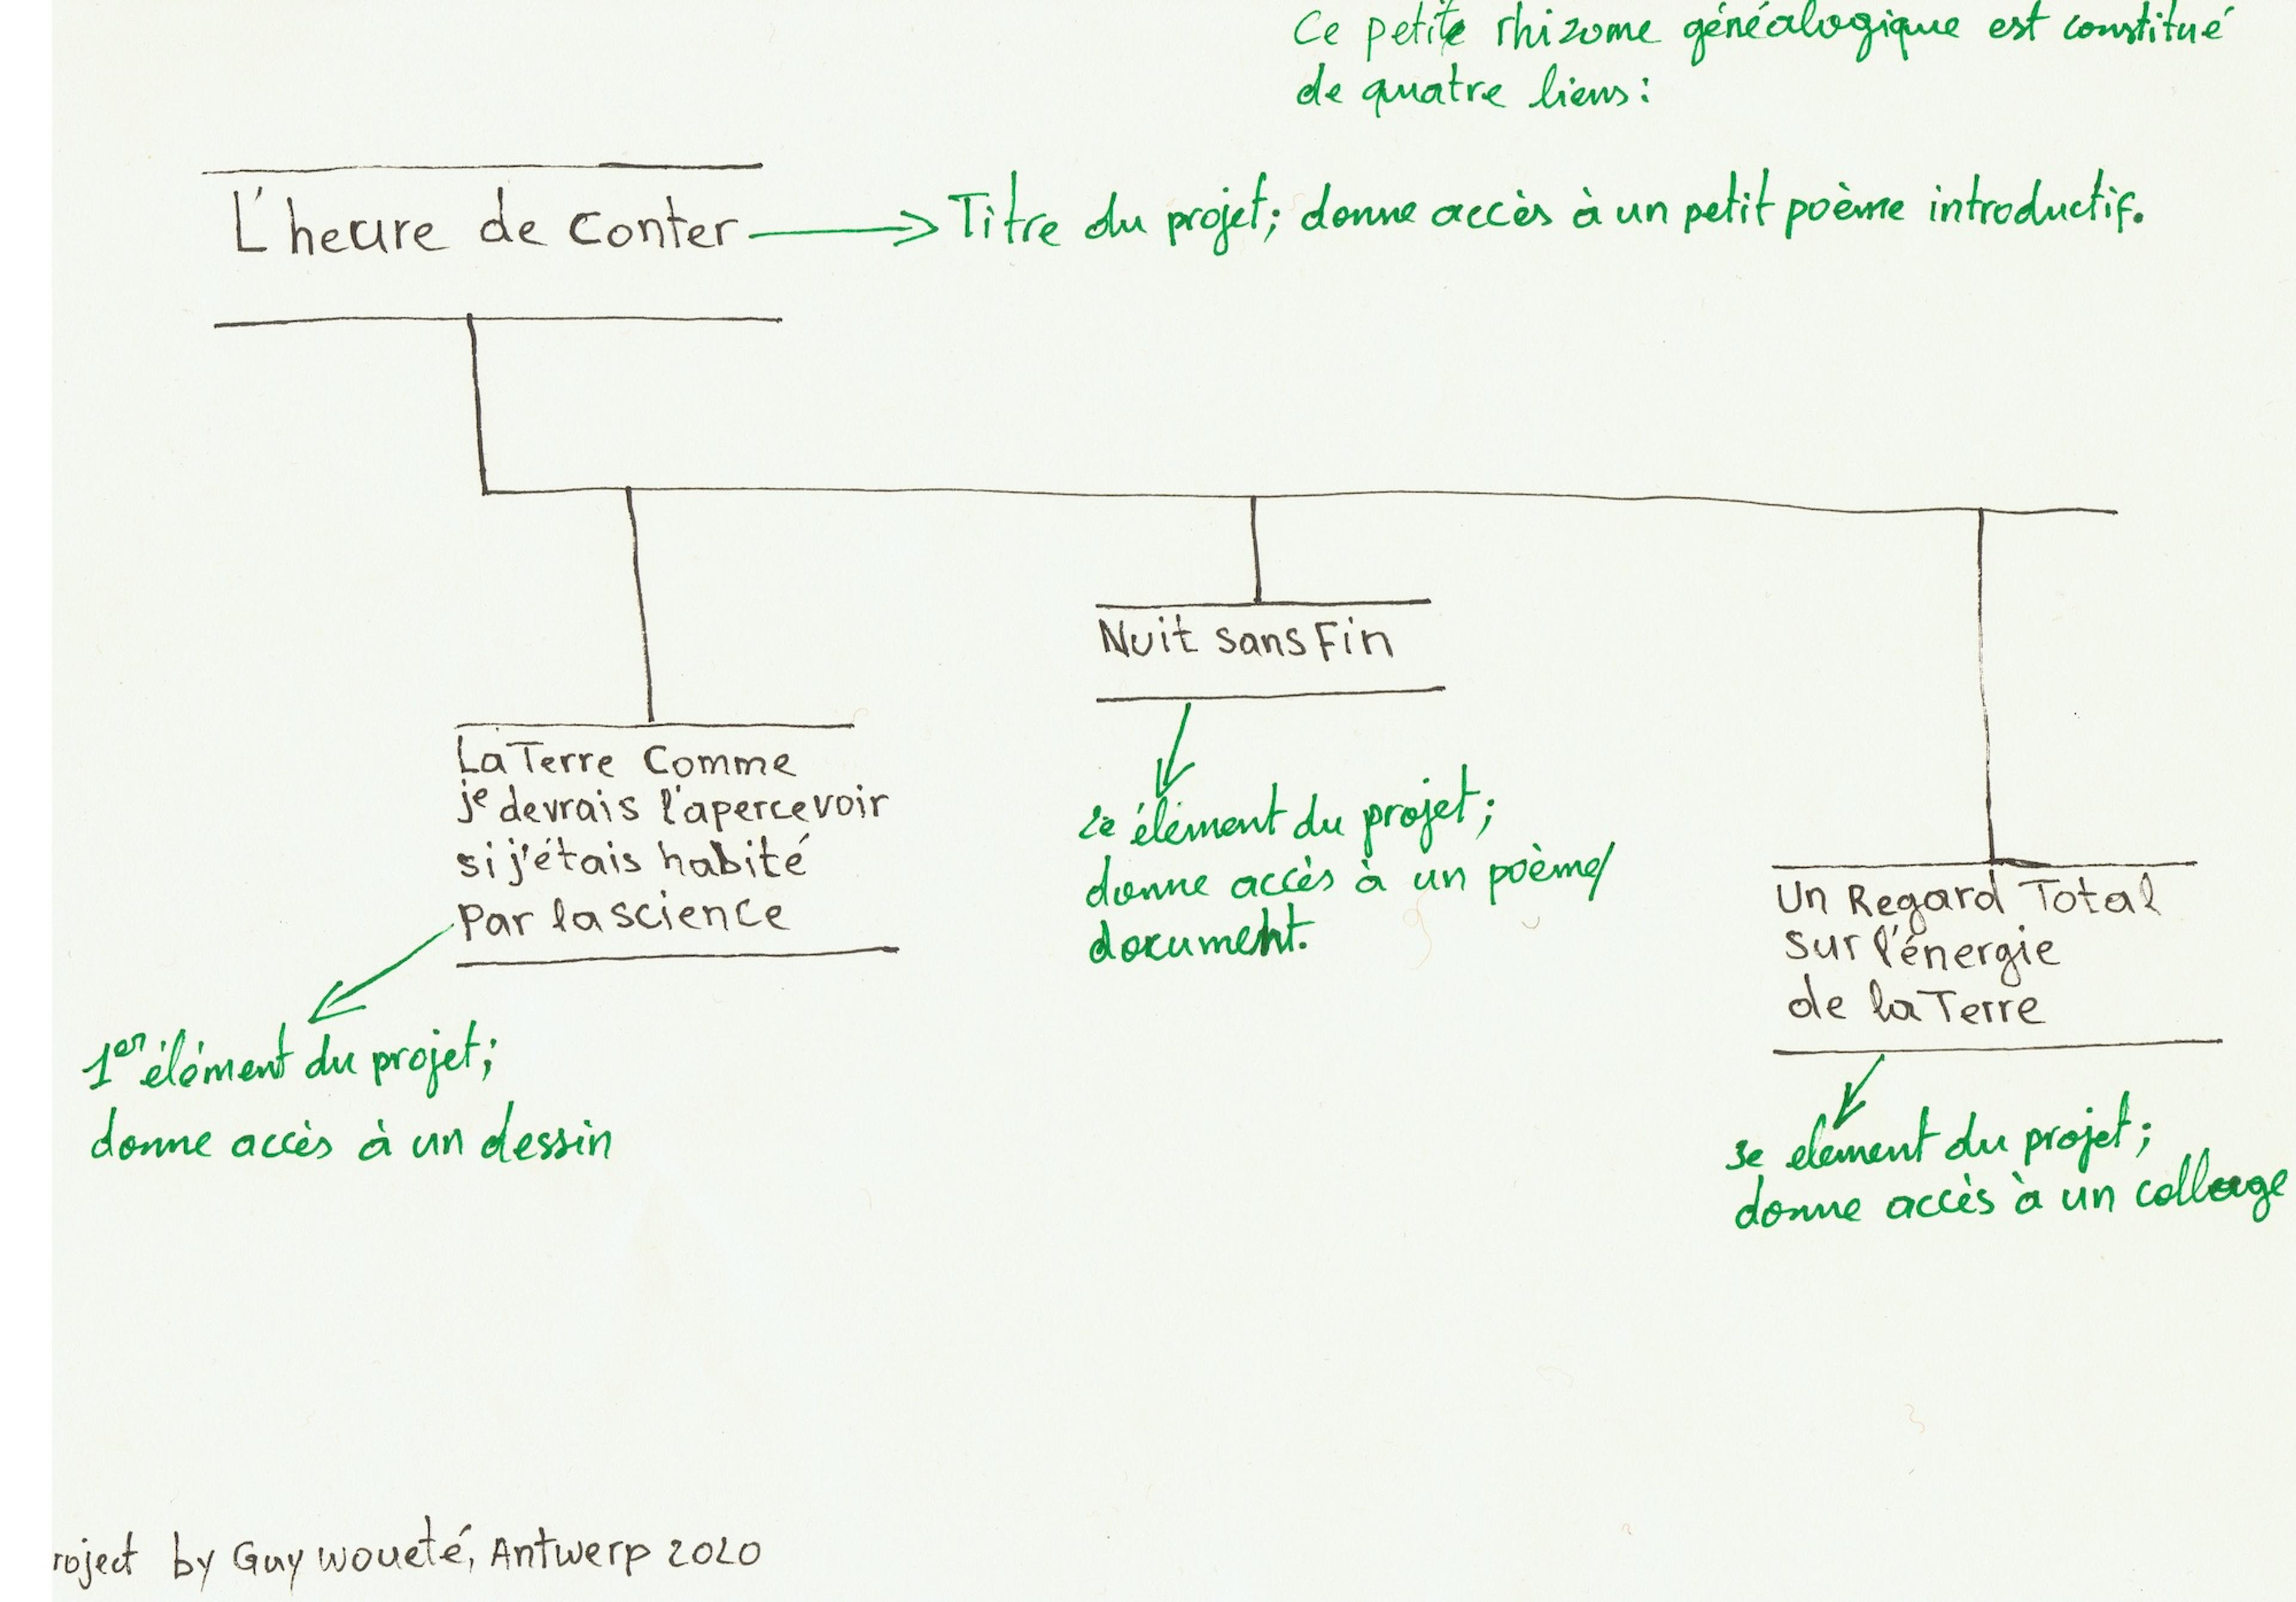 Ce petite rhizome généalogique est constitué
de quatre liens:
L'heure de conter
Titre du projet; donne accès à un petit poème introductif.
Nuit sans Fin
La Terre Comme
je devrais l'apercevoir
si j'étais habité
Par la science
2e élément du projet;
donne accès à un poème/
document.
Un Regard Total
sur l'énergie
de la Terre
1er élément du projet;
donne accès à un dessin
3e element du projet;
donne accès à un collage
roject by Guy woueté, Antwerp 2020